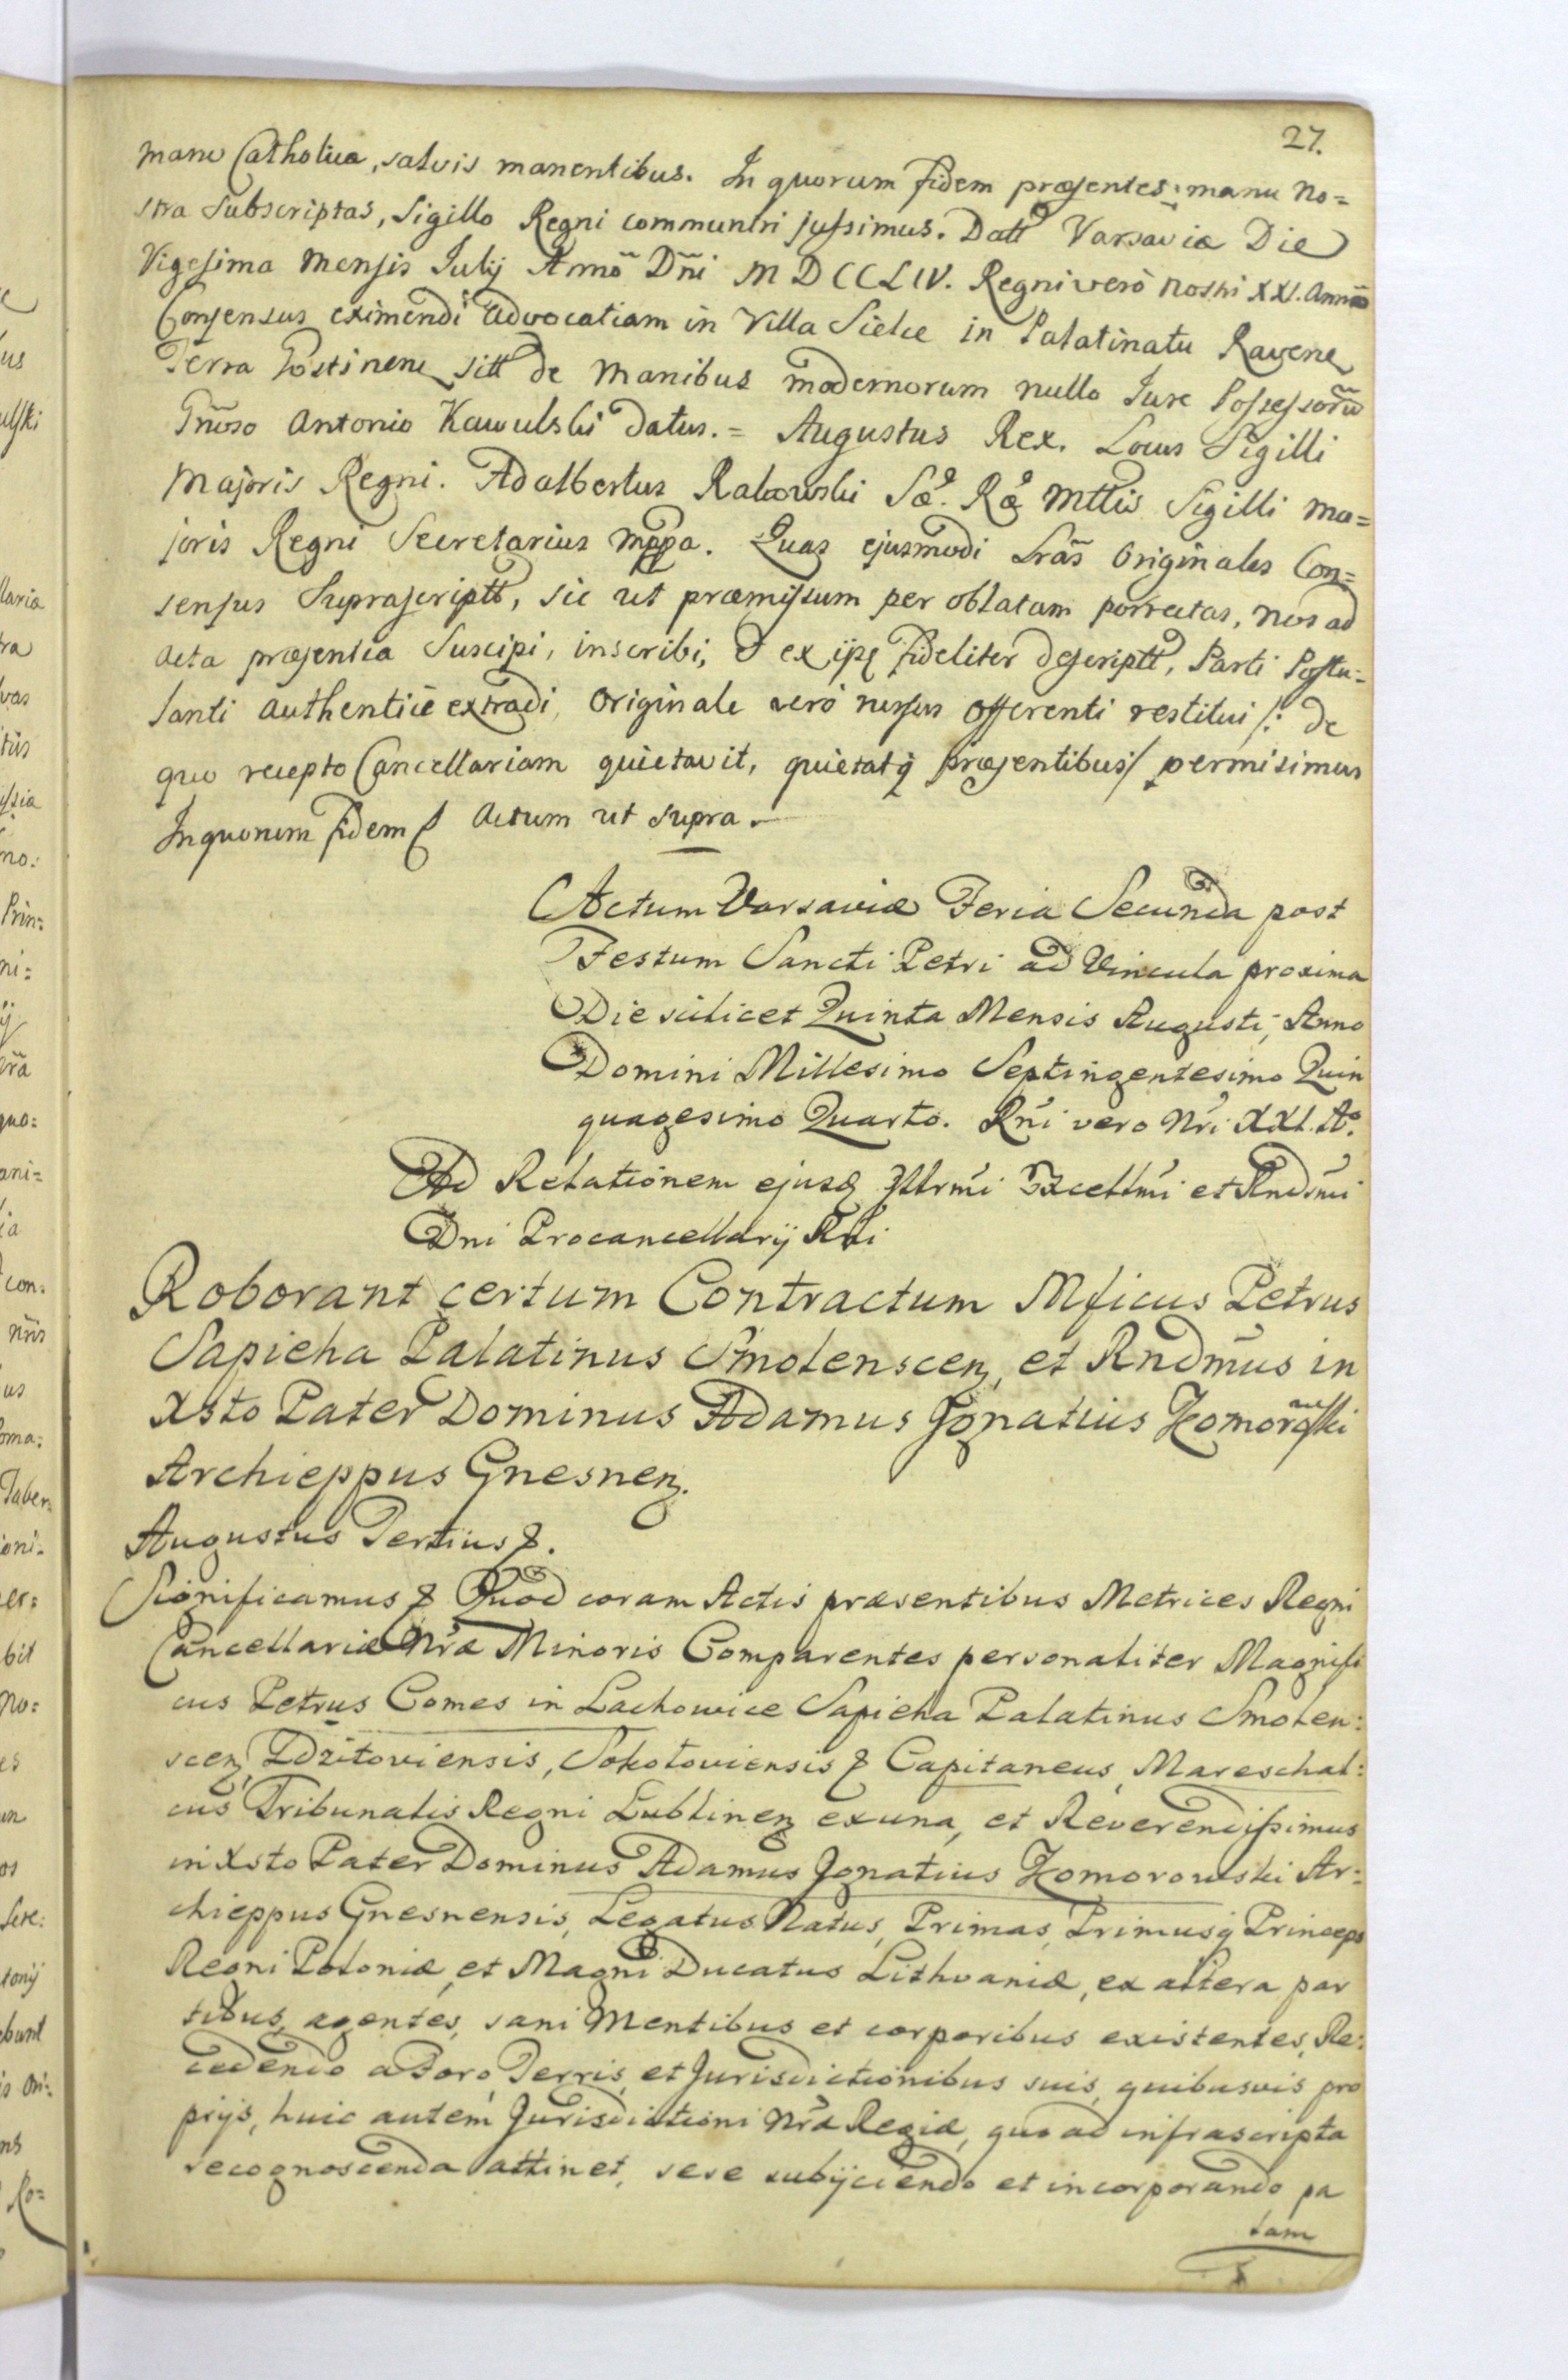 27.
mano Catholica, salvis manentibus. In quorum fidem præsentes manu No=
stra Subscriptas, Sigillo Regni communiri jussimus. Datt Varsaviæ Die
Vigesima Mensis Julij Annõ Dñi MDCCLIV. Regni verò Nostri XXI. Anno
Consensus eximendi advocatiam in Villa Sielce in Palatinatu Raven
Terra Gostinen sitt de Manibus modernorum nullo Jure Possessorũ
Gñoso Antonio Kawulski datus. = Augustus Rex. Locus Sigilli
Majoris Regni. Adalbertus Rakowski Sæ. Ræ Mttis Sigilli Ma=
joris Regni Secretarius mppa. Quas ejusmodi Lrãs Originales Con=
sensus Suprascriptt, sic ut præmissum per oblatam porrectas, nos ad
Acta præsentia Suscipi, inscribi, & ex ijsq fideliter descriptt, Parti Postu=
lanti authenticè extradi, Originale verò rursus offerenti restitui /: de
quo recepto Cancellariam quietavit, quietatq præsentibus / permisimus
In quorum fidem Actum ut supra.
Actum Varsaviæ Feria Secunda post
Festum Sancti Petri ad Vincula proxima
Die scilicet Quinta Mensis Augusti, Anno
Domini Millesimo Septingentesimo Quin
quagesimo Quarto. Rñi vero Nri XXI. Aº.
Ad Relationem ejusd Illrmi Excellmi et Rndmi
Dni Procancellarij Rni
Roborant certum Contractum Mficus Petrus
Sapieha Palatinus Smolenscen, et Rndmus in
Xsto Pater Dominus Adamus Ignatius Komorowski
Archieppus Gnesnen.
Augustus Tertius &.
Significamus & Quod coram Actis præsentibus Metrices Regni
Cancellariæ Nræ Minoris Comparentes personaliter Magnifi
cus Petrus Comes in Lachowice Sapieha Palatinus Smolen:
scen, Zdzitoviensis, Sokołoviensis & Capitaneus, Mareschal:
cus Tribunalis Regni Lublinen ex una, et Reverendissimus
in Xsto Pater Dominus Adamus Ignatius Komorowski Ar:
chieppus Gnesnensis, Legatus Natus, Primas, Primusq Princeps
Regni Poloniæ, et Magni Ducatus Lithvaniæ, ex altera par
tibus, agentes, sani Mentibus et corporibus existentes, Re:
cedendo a Foro, Terris, et Jurisdictionibus suis, quibusvis pro
prijs, huic autem Jurisdictioni Nræ Regiæ, quo ad infrascripta
recognoscenda attinet, sese subijciendo et incorporando pa
lam